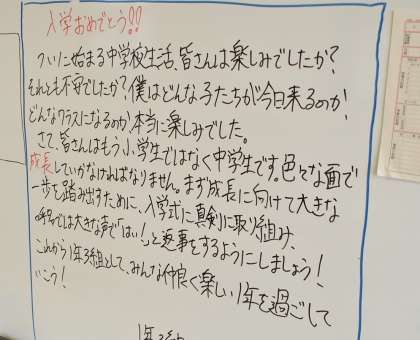 入学おめでとう!!
ついに始まる中学校生活、皆さんは楽しみでしたか?
それとも不安でしたか?僕はどんな子たちが今日来るのか、
どんなクラスになるのか、本当に楽しみでした。
さて、皆さんはもう小学生ではなく中学生です。色々な面で
成長していかなければなりません。まず成長に向けて大きな
一歩を踏み出すために、入学式に真剣に取り組み、
呼名では大きな声で「はい!」と返事をするようにしましょう!
これから1年3組として、みんな仲良く楽しい1年を過ごして
いこう!
1年3組